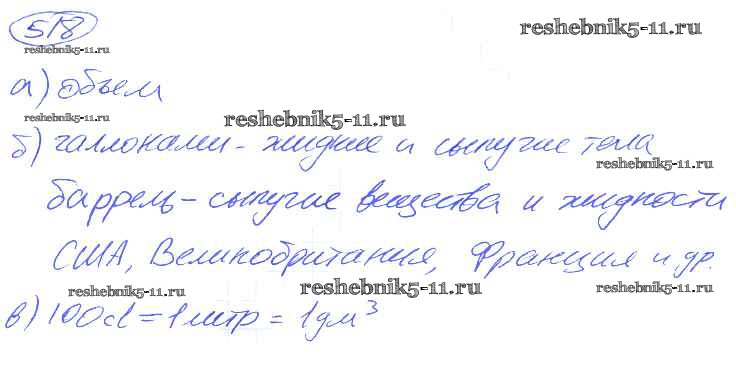 518
reshebnik5-11.ru
reshebnik5-11.ru
а) объем
reshebnik5-11.ru
reshebnik5-11.ru
б) галлонами - жидкие и сыпучие тела
reshebnik5-11.ru
баррель - сыпучие вещества и жидкости
США, Великобритания, Франция и др.
reshebnik5-11.ru
reshebnik5-11.ru
reshebnik5-11.ru
в) 100cl = 1 литр = 1 дм³